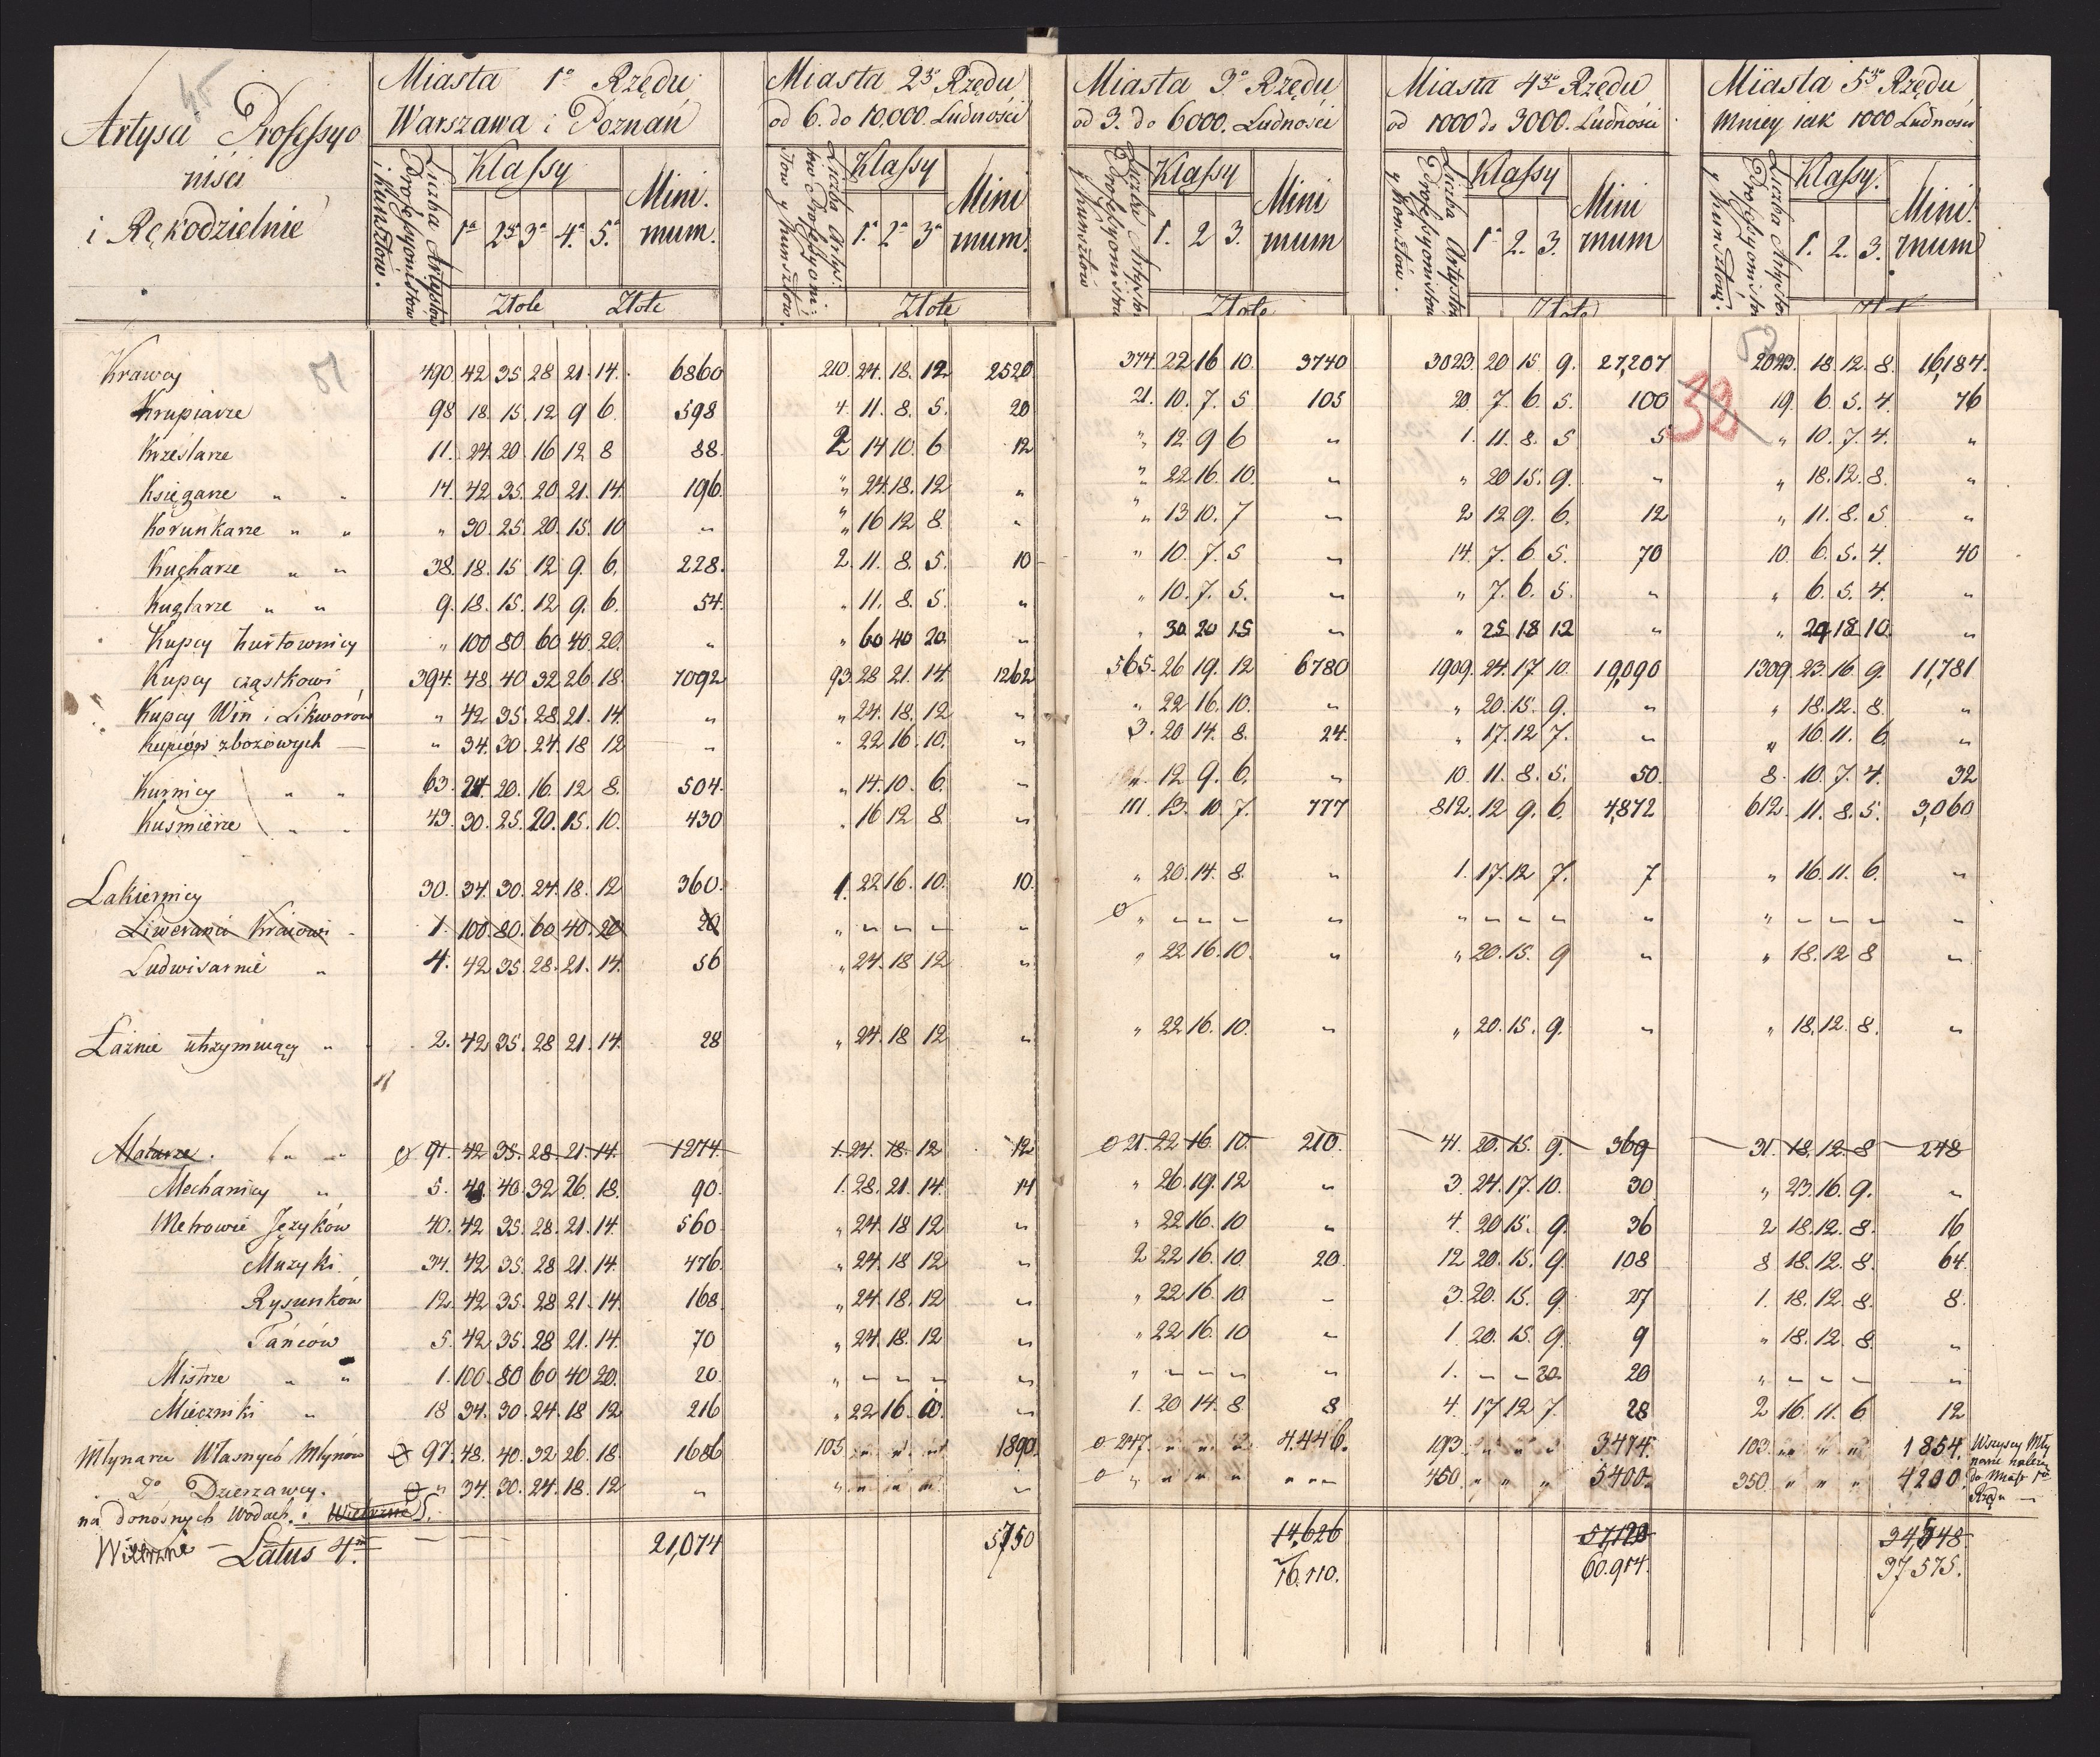 45
Artyści Professyo
niści
i Rękodzielnie
Miasta 1o Rzędu
Warszawa i Poznań
Liczba Artystów
Professyonistów
i Kunsztów.
Klassy
1a 2a 3a 4a 5a
Mini.
mum.
Złote Złote
Miasta 2go Rzędu
od 6. do 10.000. Ludności
Liczba Artys:
tów y Kunsztów.
Klassy
1a 2a 3a
Mini
mum.
Złote
Miasta 3o Rzędu
od 3. do 6000. Ludności
Liczba Artystów
Professyonistów
y Kunsztów
Klassy
1. 2 3.
Mini
mum
Złote
Miasta 4go Rzędu
od 1000 do 3000. Ludności
Liczba Artystów
Professyonistów
y Konsztów.
Klassy
1a 2. 3.
Mini
mum
Złote
Miasta 5go Rzędu
Mniey iak 1000 Ludności
Liczba Artystów
Professyonistów
y Kunsztów.
Klassy.
1. 2. 3.
Mini.
mum
38
Krawcy 490. 42 35 28 21. 14. 6860 210. 24. 18. 12 2520 374. 22 16 10. 3740 3023. 20 15 9. 27,207 2023. 18. 12. 8. 16,184.
Krupiarze 98 18. 15. 12 9 6. 598 4. 11. 8. 5. 20 21. 10. 7. 5 105 20. 7. 6. 5. 100 19. 6. 5. 4. 76
Krześlarze 11. 24. 20 16 12 8 88. 2 14 10. 6 12 " 12 9 6 " 1. 11. 8. 5 5 " 10. 7. 4. "
Księgarze " " 14. 42. 35. 20 21. 14. 196. " 24. 18. 12 " " 22 16. 10. " " 20 15. 9. " " 18. 12. 8. "
Korunkarze " " " 30. 25. 20. 15. 10 " " 16 12 8. " " 13 10. 7 " 2 12 9. 6. 12 " 11. 8. 5 "
Kucharze " " 38. 18. 15. 12 9. 6. 228. 2. 11. 8. 5. 10 " 10. 7. 5 " 14. 7. 6 5. 70 10. 6. 5. 4. 40
Kuglarze " " 9. 18. 15. 12 9. 6. 54. " 11. 8. 5. " " 10. 7. 5. " " 7. 6. 5. " " 6. 5. 4. "
Kupcy hurtownicy " 100 80. 60 40. 20. " " 60 40 20. " " 30 20 15 " " 25 18 12 " " 24 18 10. "
Kupcy cząstkowi 394. 48. 40. 32 26. 18. 7092 93. 28 21. 14. 1262 565. 26 19. 12 6780 1909. 24. 17. 10. 19,090 1309. 23. 16. 9. 11,781
Kupcy Win i Likworów " 42 35. 28. 21. 14. " " 24. 18. 12 " " 22 16. 10. " " 20. 15. 9. " " 18. 12. 8. "
Kupców zbożowych " 34. 30. 24. 18 12 " " 22 16. 10. " 3. 20 14. 8. 24. " 17. 12 7. " " 16. 11. 6. "
Kurnicy " " 63. 24. 20. 16. 12 8. 504. " 14. 10. 6. " " 12 9. 6. " 10. 11. 8. 5. 50. 8. 10. 7. 4. 32
Kuśmierze " " 43. 30. 25. 20. 15. 10. 430 " 16 12 8. " 111. 13. 10. 7. 777 812. 12 9. 6. 4,872 612. 11. 8. 5. 3,060
Lakiernicy 30. 34. 30. 24. 18. 12 360. 1. 22 16. 10. 10. " 20. 14. 8. " 1. 17. 12 7. 7 " 16. 11. 6. "
Liweranci Kraiowi 1. 100 80. 60 40. 20 20 " " " " " " " " " " " " " " " " " " " "
Ludwisarnie " 4. 42 35. 28. 21. 14. 56 " 24. 18 12 " " 22 16. 10. " " 20. 15. 9 " " 18. 12 8 "
Łaźnie utrzymuiący " 2. 42 35. 28 21. 14. 28 " 24. 18 12 " " 22 16. 10. " " 20. 15. 9. " " 18. 12. 8. "
Malarze. " " 91. 42 35. 28 21. 14. 1274. 1. 24. 18. 12 12 21. 22 16. 10. 210. 41. 20. 15. 9. 369 31. 18. 12. 8 248
Mechanicy " 5. 48. 40 32 26. 18. 90. 1. 28. 21. 14. 14 " 26. 19. 12 " 3. 24. 17. 10. 30 " 23. 16. 9. "
Metrowie Języków 40. 42 35. 28. 21. 14. 560 " 24. 18 12 " " 22 16. 10 " 4. 20 15. 9. 36 2 18. 12. 8. 16
Muzyki. 34. 42 35. 28 21. 14. 476. " 24. 18 12 " 2 22 16. 10. 20. 12 20. 15. 9. 108 8 18. 12. 8. 64.
Rysunków 12. 42 35. 28 21. 14. 168 " 24. 18. 12 " " 22 16 10. " 3. 20. 15. 9. 27 1. 18. 12 8. 8.
Tańców 5. 42 35. 28 21. 14. 70 " 24. 18. 12 " " 22 16. 10 " 1. 20. 15. 9. 9 " 18. 12. 8. "
Mistrze " " 1. 100. 80 60 40 20. 20. " " " " " " " " " " 1. " " 20. 20 " " " " "
Miecznicki " 18 34. 30. 24. 18 12 216 " 22 16. 10. " 1. 20 14. 8. 8 4. 17 12 7. 28 2 16. 11. 6 12
Młynarze Własnych Młynów 97. 48. 40. 32 26. 18. 1686 105 " " " 1890. 247. " " " 4.446. 193. " " " 3474. 103. " " " 1854. Wszyscy Mły
narze należą
do Miast 1o
Rzędu
Do Dzierzawcy. " 34. 30. 24. 18. 12 " " " " " " " " " " " 450. " " " 5400. 350. " " " 4200.
na donośnych Wodach. i Wietrzne
Wietrzne Latus 4m 21,074 5750 14,626 57,128 34,548.
16.110. 60.914. 37 575.